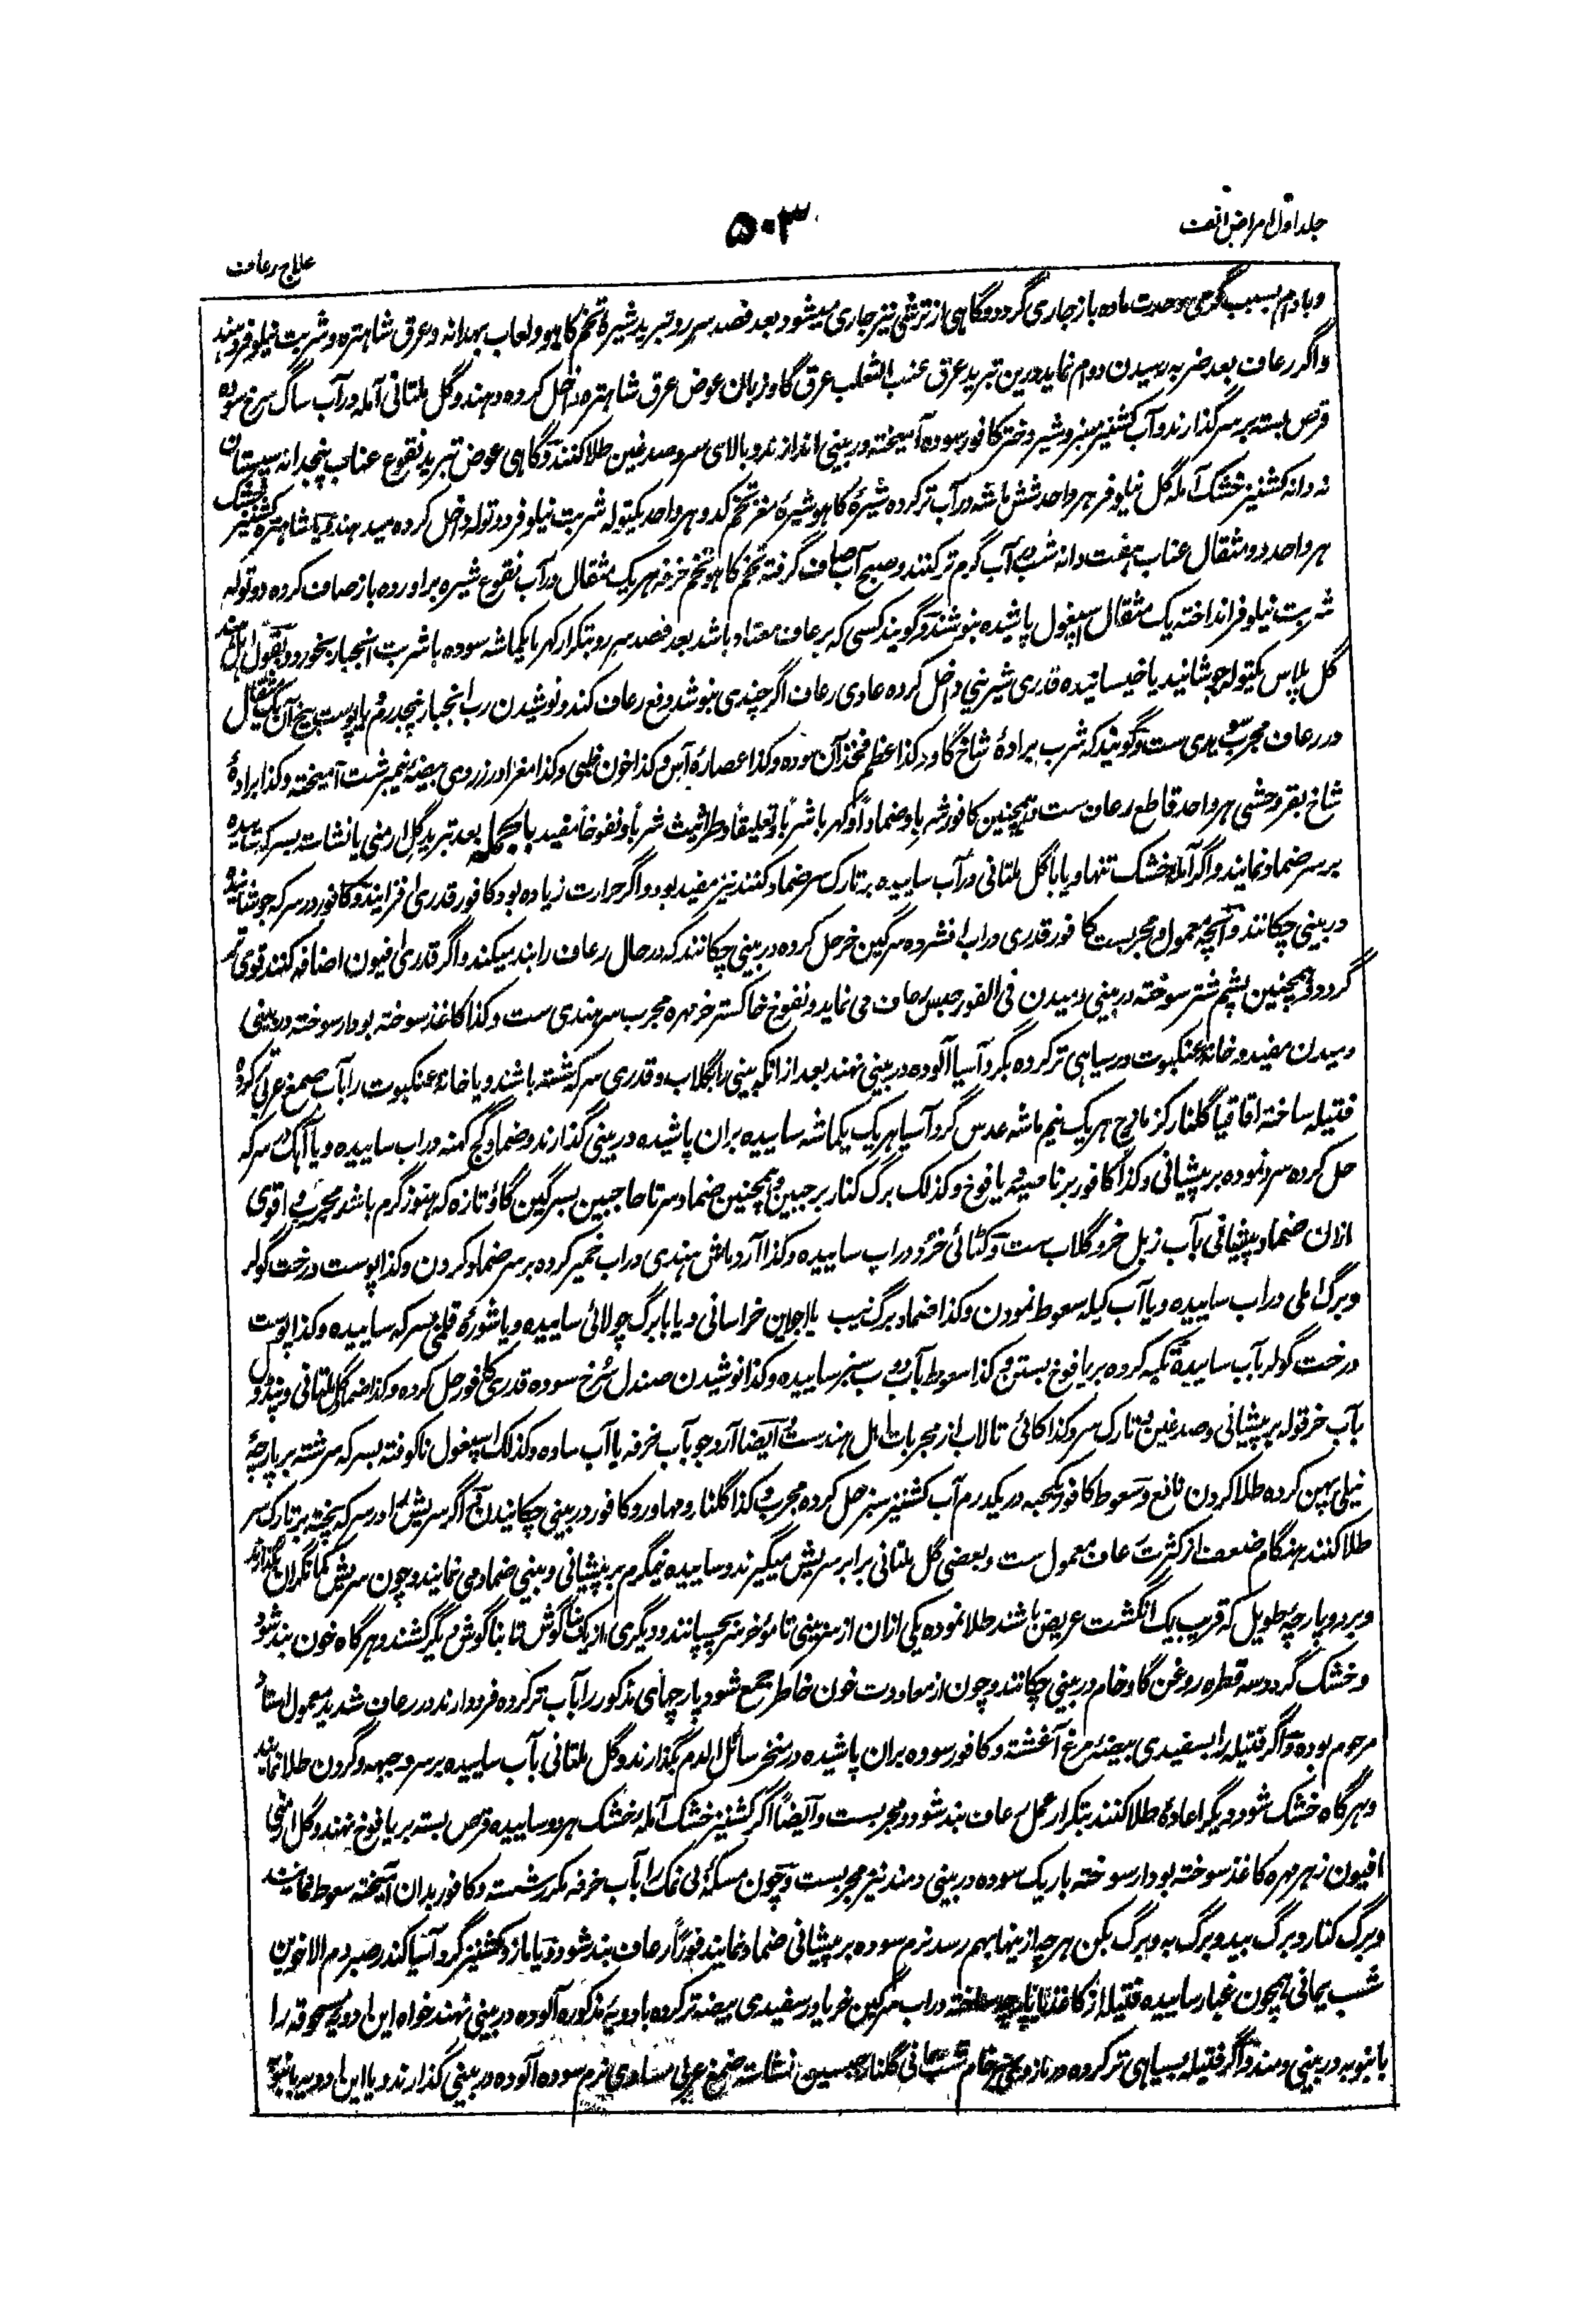 جلد اول امراض انف
۵۰۳
علاج رعاف
و یا دم بسبب گرمی و حدت ماده باز جاری گردد و گاهی از ترشی نیز جاری میشود بعد فصد سرو تبرید شیرهٔ تخم کاهو و لعاب بهدانه و عرق شاهتره و شربت نیلوفر دهند
و اگر رعاف بعد ضربه رسیدن دوام نماید درین تبرید عرق عنب الثعلب عرق گاوزبان عوض عرق شاهتره داخل کرده دهند و گل ملتانی آمله در آب ساگ سرخ سوده
قرص بسته بر سر گذارند و آب کشنیز سبز و شیر دختر کافور سوده آمیخته در بینی اندازند و بالای سر و صدغین طلا کنند و گاهی عوض تبرید نقوع عناب پنجدانه سپستان
نه دانه کشنیز خشک آمله گل نیلوفر هر واحد شش ماشه در آب تر کرده شیرهٔ کاهو شیرهٔ مغز تخم کدو هر واحد یکتوله شربت نیلوفر دو توله داخل کرده میدهند و یا شاهتره کشنیز خشک
هر واحد دو مثقال عناب هفت دانه شب در آب گرم تر کنند و صبح آب صاف گرفته تخم کاهو تخم خرفه هر یک مثقال در آب نقوع شیره براورده باز صاف کرده دو توله
شربت نیلوفر انداخته یک مثقال اسپغول پاشیده بنوشند و گویند کسی که برعاف معتاد باشد بعد فصد سرو بتکرار کهربا یکماشه سوده با شربت انجبار بخورد و بقول اهل هند
گل پلاس یکتوله جوشانیده یا خیسانیده قدری شیرینی داخل کرده عادی رعاف اگر چندی بنوشد دفع رعاف کند و نوشیدن رب انجبار پنجدرم یا پوست بیخ آن یک مثقال
در رعاف مجرب سویدی ست و گویند که شرب برادهٔ شاخ گاو و کذا عظم فخذ آن سوده و کذا عصارهٔ آس و کذا خون ظبی و کذا مغز او در زردی بیضهٔ نیمبرشت آمیخته و کذا برادهٔ
شاخ بقر وحشی هر واحد قاطع رعاف ست و همچنین کافور شرباً و ضماداً و کهربا شرباً و تعلیقاً و طراثیث شرباً و نفوخاً مفید بالجمله بعد تبرید گل ارمنی یا نشاسته بسرکه سائیده
بر سر ضماد نمایند و اگر آمله خشک تنها و یا با گل ملتانی در آب ساییده بر تارک سر ضماد کنند نیز مفید بود و اگر حرارت زیاده بود کافور قدری افزایند و کافور در سرکه جوشانیده
در بینی چکانند و آنچه معمول و مجرب ست کافور قدری در آب افشرده سرگین خر حل کرده در بینی چکانند که در حال رعاف را بند میکند و اگر قدری افیون اضافه کنند قوی تر
گردد و همچنین پشم شتر سوخته در بینی دمیدن فی الفور حبس رعاف می نماید و نفوخ خاکستر خرمهره مجرب سرهندی ست و کذا کاغذ سوخته بودار سوخته در بینی
دمیدن مفید و خانهٔ عنکبوت در سیاهی تر کرده بگرد آسیا آلوده در بینی نهند بعد از انکه بینی را بگلاب و قدری سرکه شسته باشند و یا خانهٔ عنکبوت را بآب صمغ عربی تر کرده
فتیله ساخته اقاقیا گلنار کزمازج هر یک نیم ماشه عدس گرد آسیا هر یک یکماشه ساییده بران پاشیده در بینی گذارند و ضماد گچ کهنه در آب ساییده و یا آهک در سرکه
حل کرده سرد نموده بر پیشانی و کذا کافور بر ناصیه و یافوخ و کذلک برگ کنار بر جبین و همچنین ضماد سر تا حاجبین بسرگین گاو تازه که هنوز گرم باشد مجرب و اقوی
ازان ضماد پیشانی بآب زبل خر و گلاب ست و کٹائی خرد در آب ساییده و کذا آرد ماش هندی در آب خمیر کرده بر سر ضماد کردن و کذا پوست درخت گولر
و برگ املی در آب ساییده و یا آب کیله سعوط نمودن و کذا ضماد برگ نیب یا اجواین خراسانی و یا با برگ چولائی ساییده و یا شورهٔ قلمی بسرکه ساییده و کذا پوست
درخت گولر بآب ساییده تکیه کرده بر یافوخ بستن و کذا سعوط بآب دوب سبز ساییده و کذا نوشیدن صندل سرخ سوده قدری کافور حل کرده و کذا ضماد گل ملتانی و پنڈول
بآب خرقوله بر پیشانی و صدغین و تارک سر و کذا کائی تالاب از مجربات اهل هند ست و ایضاً آرد جو بآب خرفه یا آب ساده و کذلک اسپغول ناکوفته بسرکه سرشته بر پارچهٔ
نیلی پهن کرده طلا کردن نافع و سعوط کافور یکحبه در یکدرم آب کشنیز سبز حل کرده مجرب و کذا گلنار و مهاور و کافور در بینی چکانیدن و اگر سریش را در سرکه پخته بر تارک سر
طلا کنند هنگام ضعف از کثرت رعاف معمول ست و بعضی گل ملتانی برابر سریش میگیرند و ساییده نیمگرم بر پیشانی و بینی ضماد می نمایند و چون سریش کمانگران بگدازند
و بر دو پارچهٔ طویل که قریب یک انگشت عریض باشند طلا نموده یکی ازان از سر بینی تا مؤخر سر بچسپانند و دیگری از یک بناگوش تا بناگوش دیگر کشند و هرگاه خون بند شود
و خشک گردد سه قطره روغن گاو خام در بینی چکانند و چون از معاودت خون خاطر جمع شود پارچهای مذکور را بآب تر کرده فرود آرند در رعاف شدید معمول استاد
مرحوم بوده و اگر فتیله را بسفیدی بیضهٔ مرغ آغشته و کافور سوده بران پاشیده در منخر سائل الدم بگذارند و گل ملتانی بآب ساییده بر سر و جبهه و گردن طلا نمایند
و هرگاه خشک شود دیگر اعادهٔ طلا کنند بتکرار عمل رعاف بند شود و مجرب ست و ایضاً اگر کشنیز خشک آمله خشک هر دو ساییده قرص بسته بر یافوخ نهند و گل ارمنی
افیون زهر مهره کاغذ سوخته بودار سوخته باریک سوده در بینی دمند نیز مجرب ست و چون مسکهٔ بی نمک را بآب خرفه مکرر شسته و کافور بدان آمیخته سعوط نمایند
و برگ کنار و برگ بید و برگ به و برگ بکن هرچه ازینها بهم رسد نرم سوده بر پیشانی ضماد نمایند فوراً رعاف بند شود و یا مازو کشنیز گرد آسیا کندر صبر دم الاخوین
شب یمانی همچون غبار ساییده فتیله از کاغذ یا پارچه ساخته در آب سرگین خر یا در سفیدی بیضه تر کرده بادویهٔ مذکوره آلوده در بینی نهند خواه این ادویهٔ مسحوقه را
بانبوبه در بینی دمند و اگر فتیله بسیاهی تر کرده در مازوی خام شب یمانی گلنار نشاسته صمغ عربی مساوی نرم سوده آلوده در بینی گذارند و یا این ادویه بانبوبه